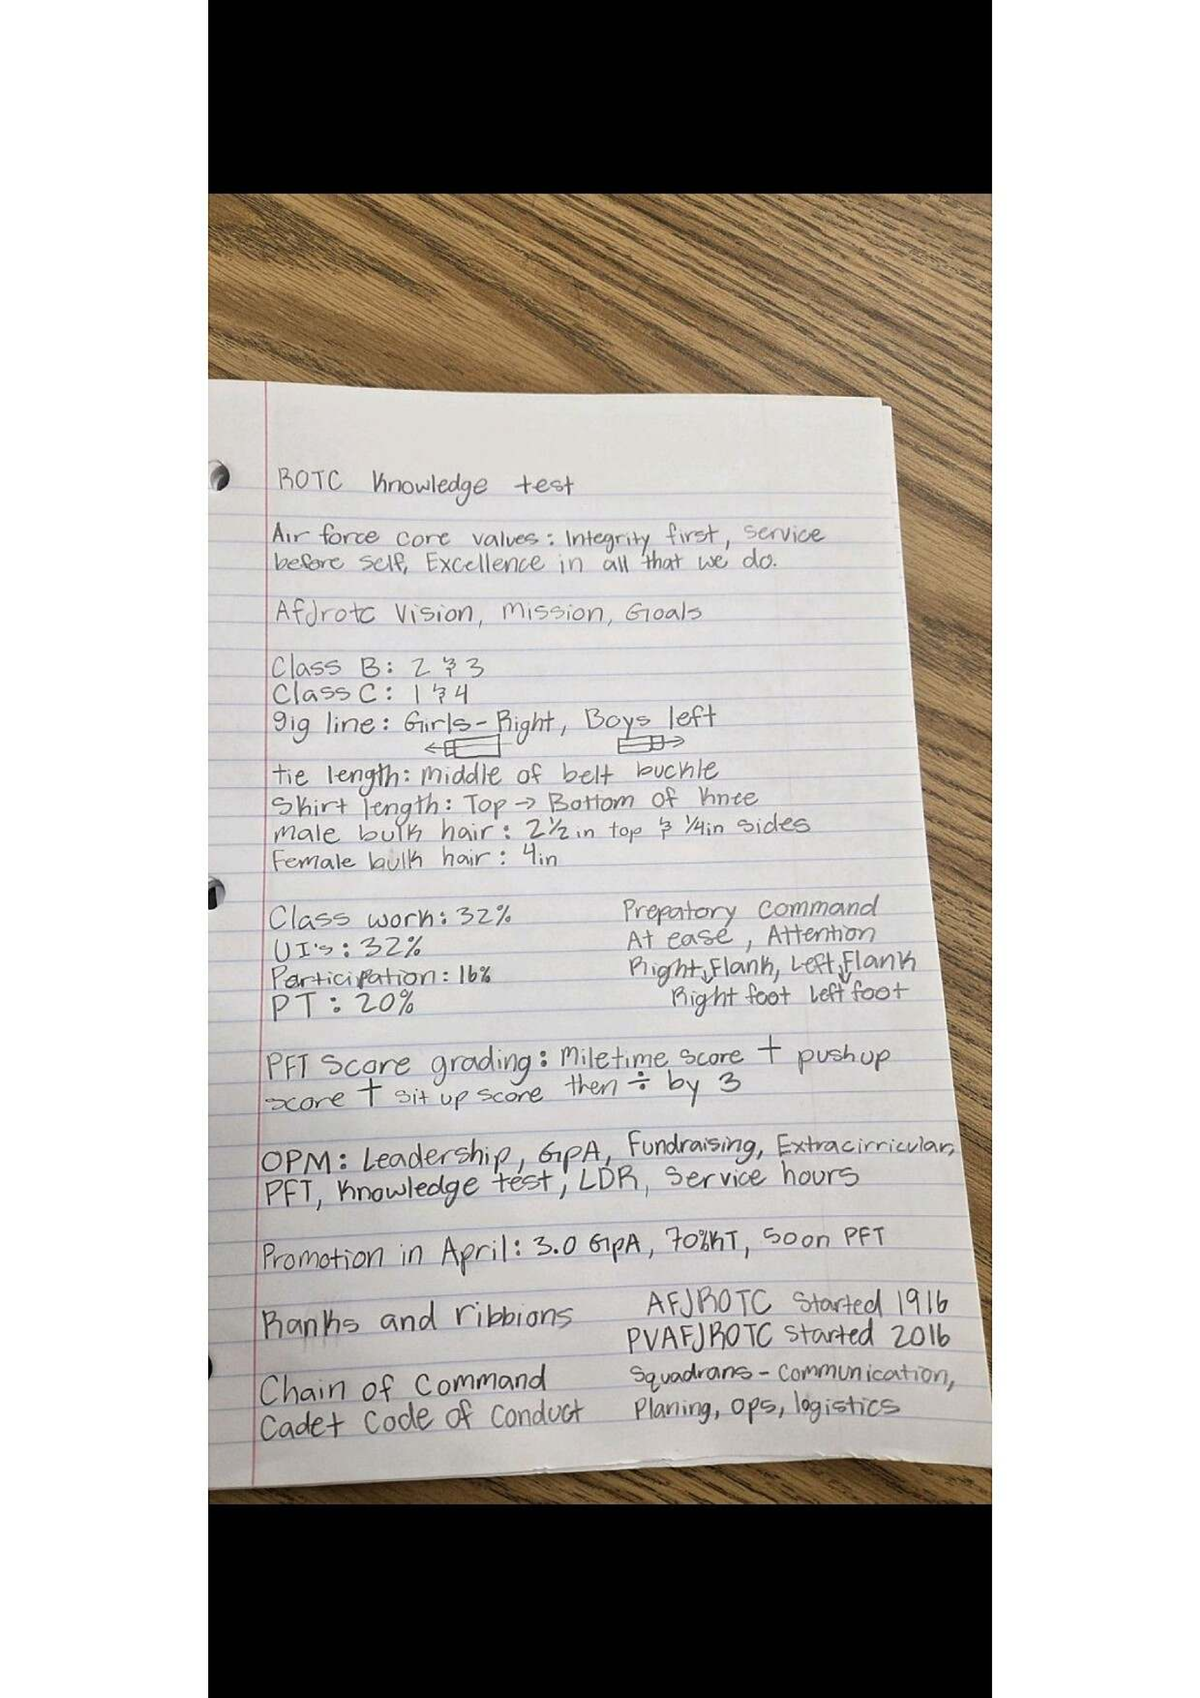 ROTC Knowledge test
Air force core values: Integrity first, service
before self, Excellence in all that we do.
Afjrotc Vision, Mission, Goals
Class B: 2 & 3
Class C: 1 & 4
gig line: Girls - Right, Boys left
tie length: middle of belt buckle
Skirt length: Top → Bottom of knee
male bulk hair: 2 1/2 in top & 1/4 in sides
Female bulk hair: 4in
Class work: 32%
UI's: 32%
Participation: 16%
PT: 20%
Prepatory Command
At ease, Attention
Right↓Flank, Left↓Flank
Right foot Left foot
PFT Score grading: Mile time score + push up
score + sit up score then ÷ by 3
OPM: Leadership, GPA, Fundraising, Extracirricular,
PFT, Knowledge test, LDR, Service hours
Promotion in April: 3.0 GPA, 70% KT, 50 on PFT
Ranks and ribbions
AFJROTC Started 1916
PVAFJROTC Started 2016
Chain of Command
Cadet Code of Conduct
Squadrans - Communication,
Planing, Ops, logistics